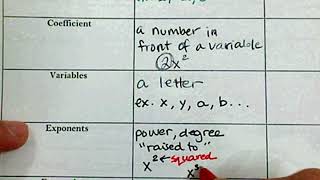 Coefficient
a number in
front of a variable
2x²
Variables
a letter
ex. x, y, a, b...
Exponents
power, degree
"raised to"
x² ← squared
x³